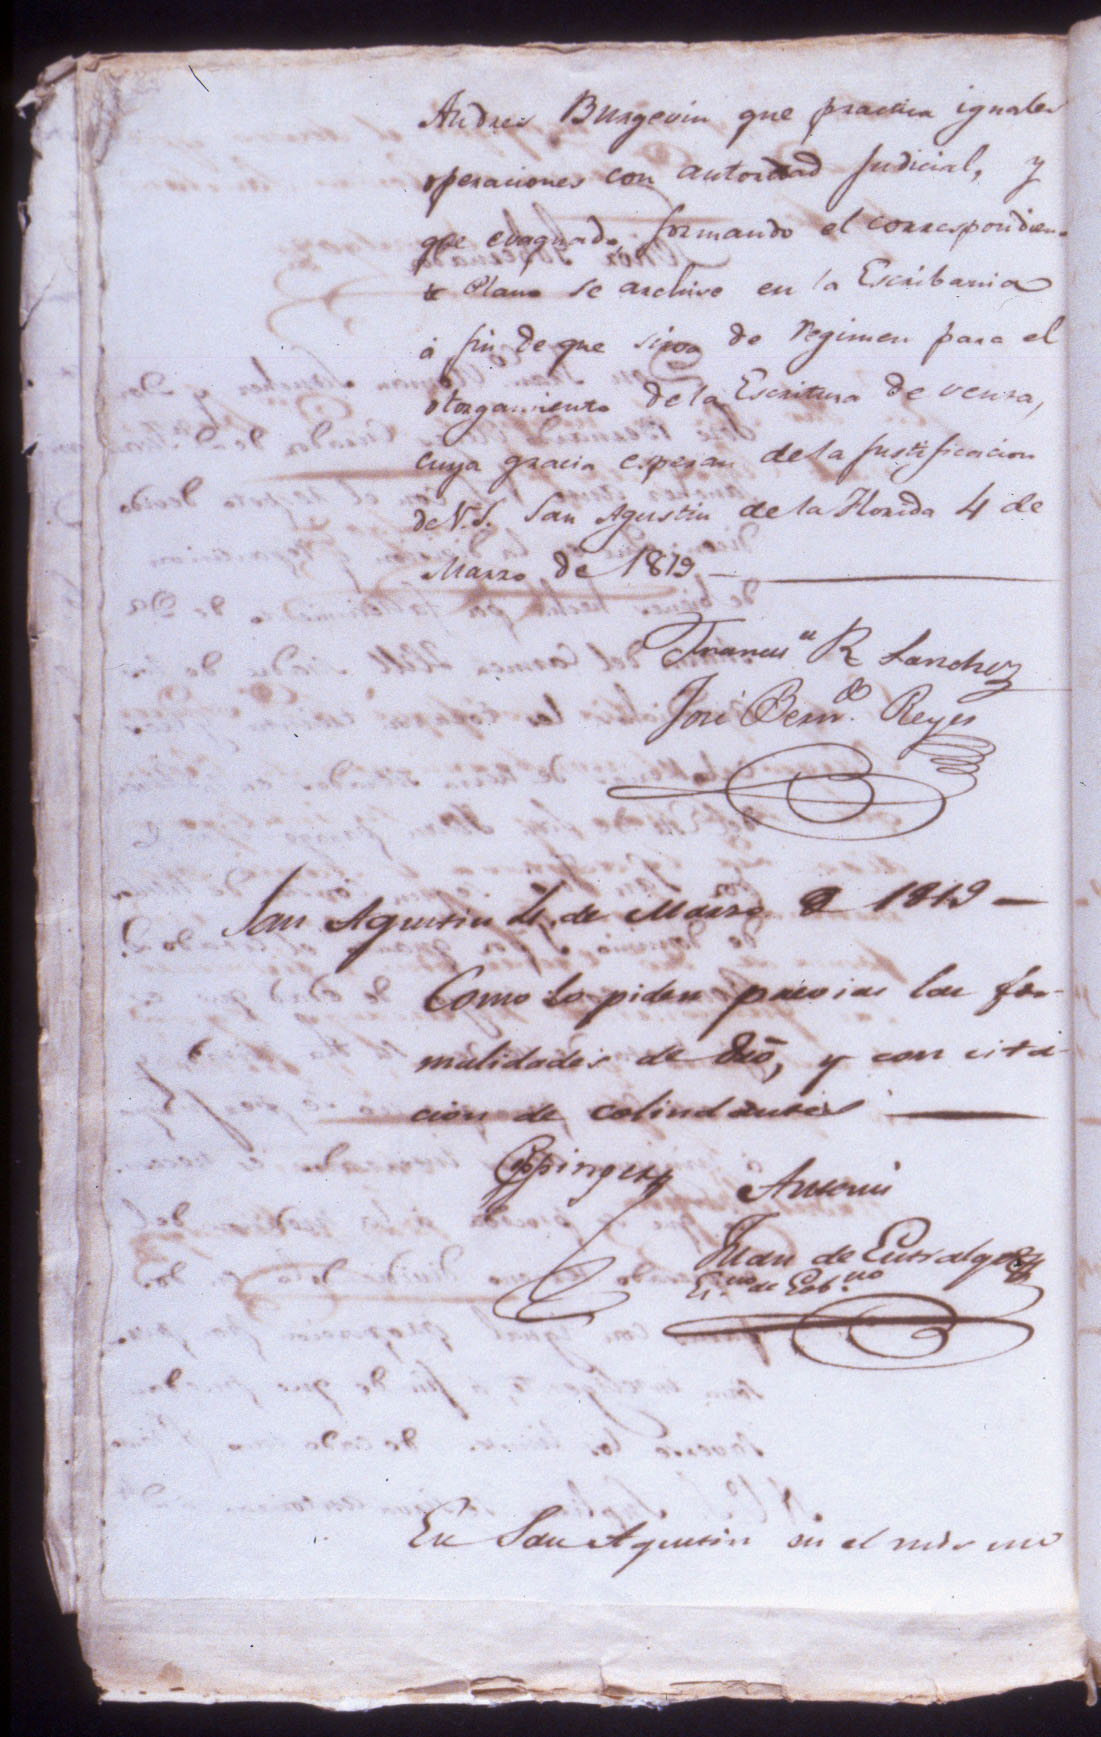 Andres Burgevin que practica iguales
operaciones con autoridad Judicial, y
que evaquado, formando el correspondien-
te Plano se archive en la Escribania
á fin de que sirva de regimen para el
otorgamiento de la Escritura de venta,
cuya gracia esperan de la justificacion
de V.S. San Agustin de la Florida 4 de
Marzo de 1819
Francisco R Sanchez
José Bern.do Reyes
San Agustin 4 de Marzo de 1819
Como lo piden previas las for-
malidades de dro, y con cita-
cion de colindantes
Coppinger
Juan de Entralgo
Es.no de Gob.no
En San Agustin en el mismo